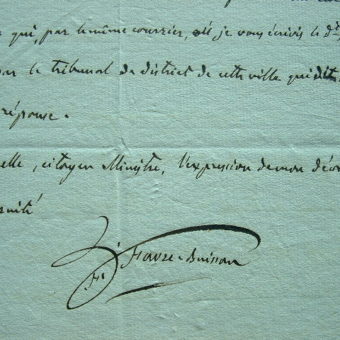 qui, par le même courrier, je vous écrivis le
par le tribunal de district de cette ville qui
réponse.
elle, citoyen Ministre, l'expression de mon
Favre-Buisson